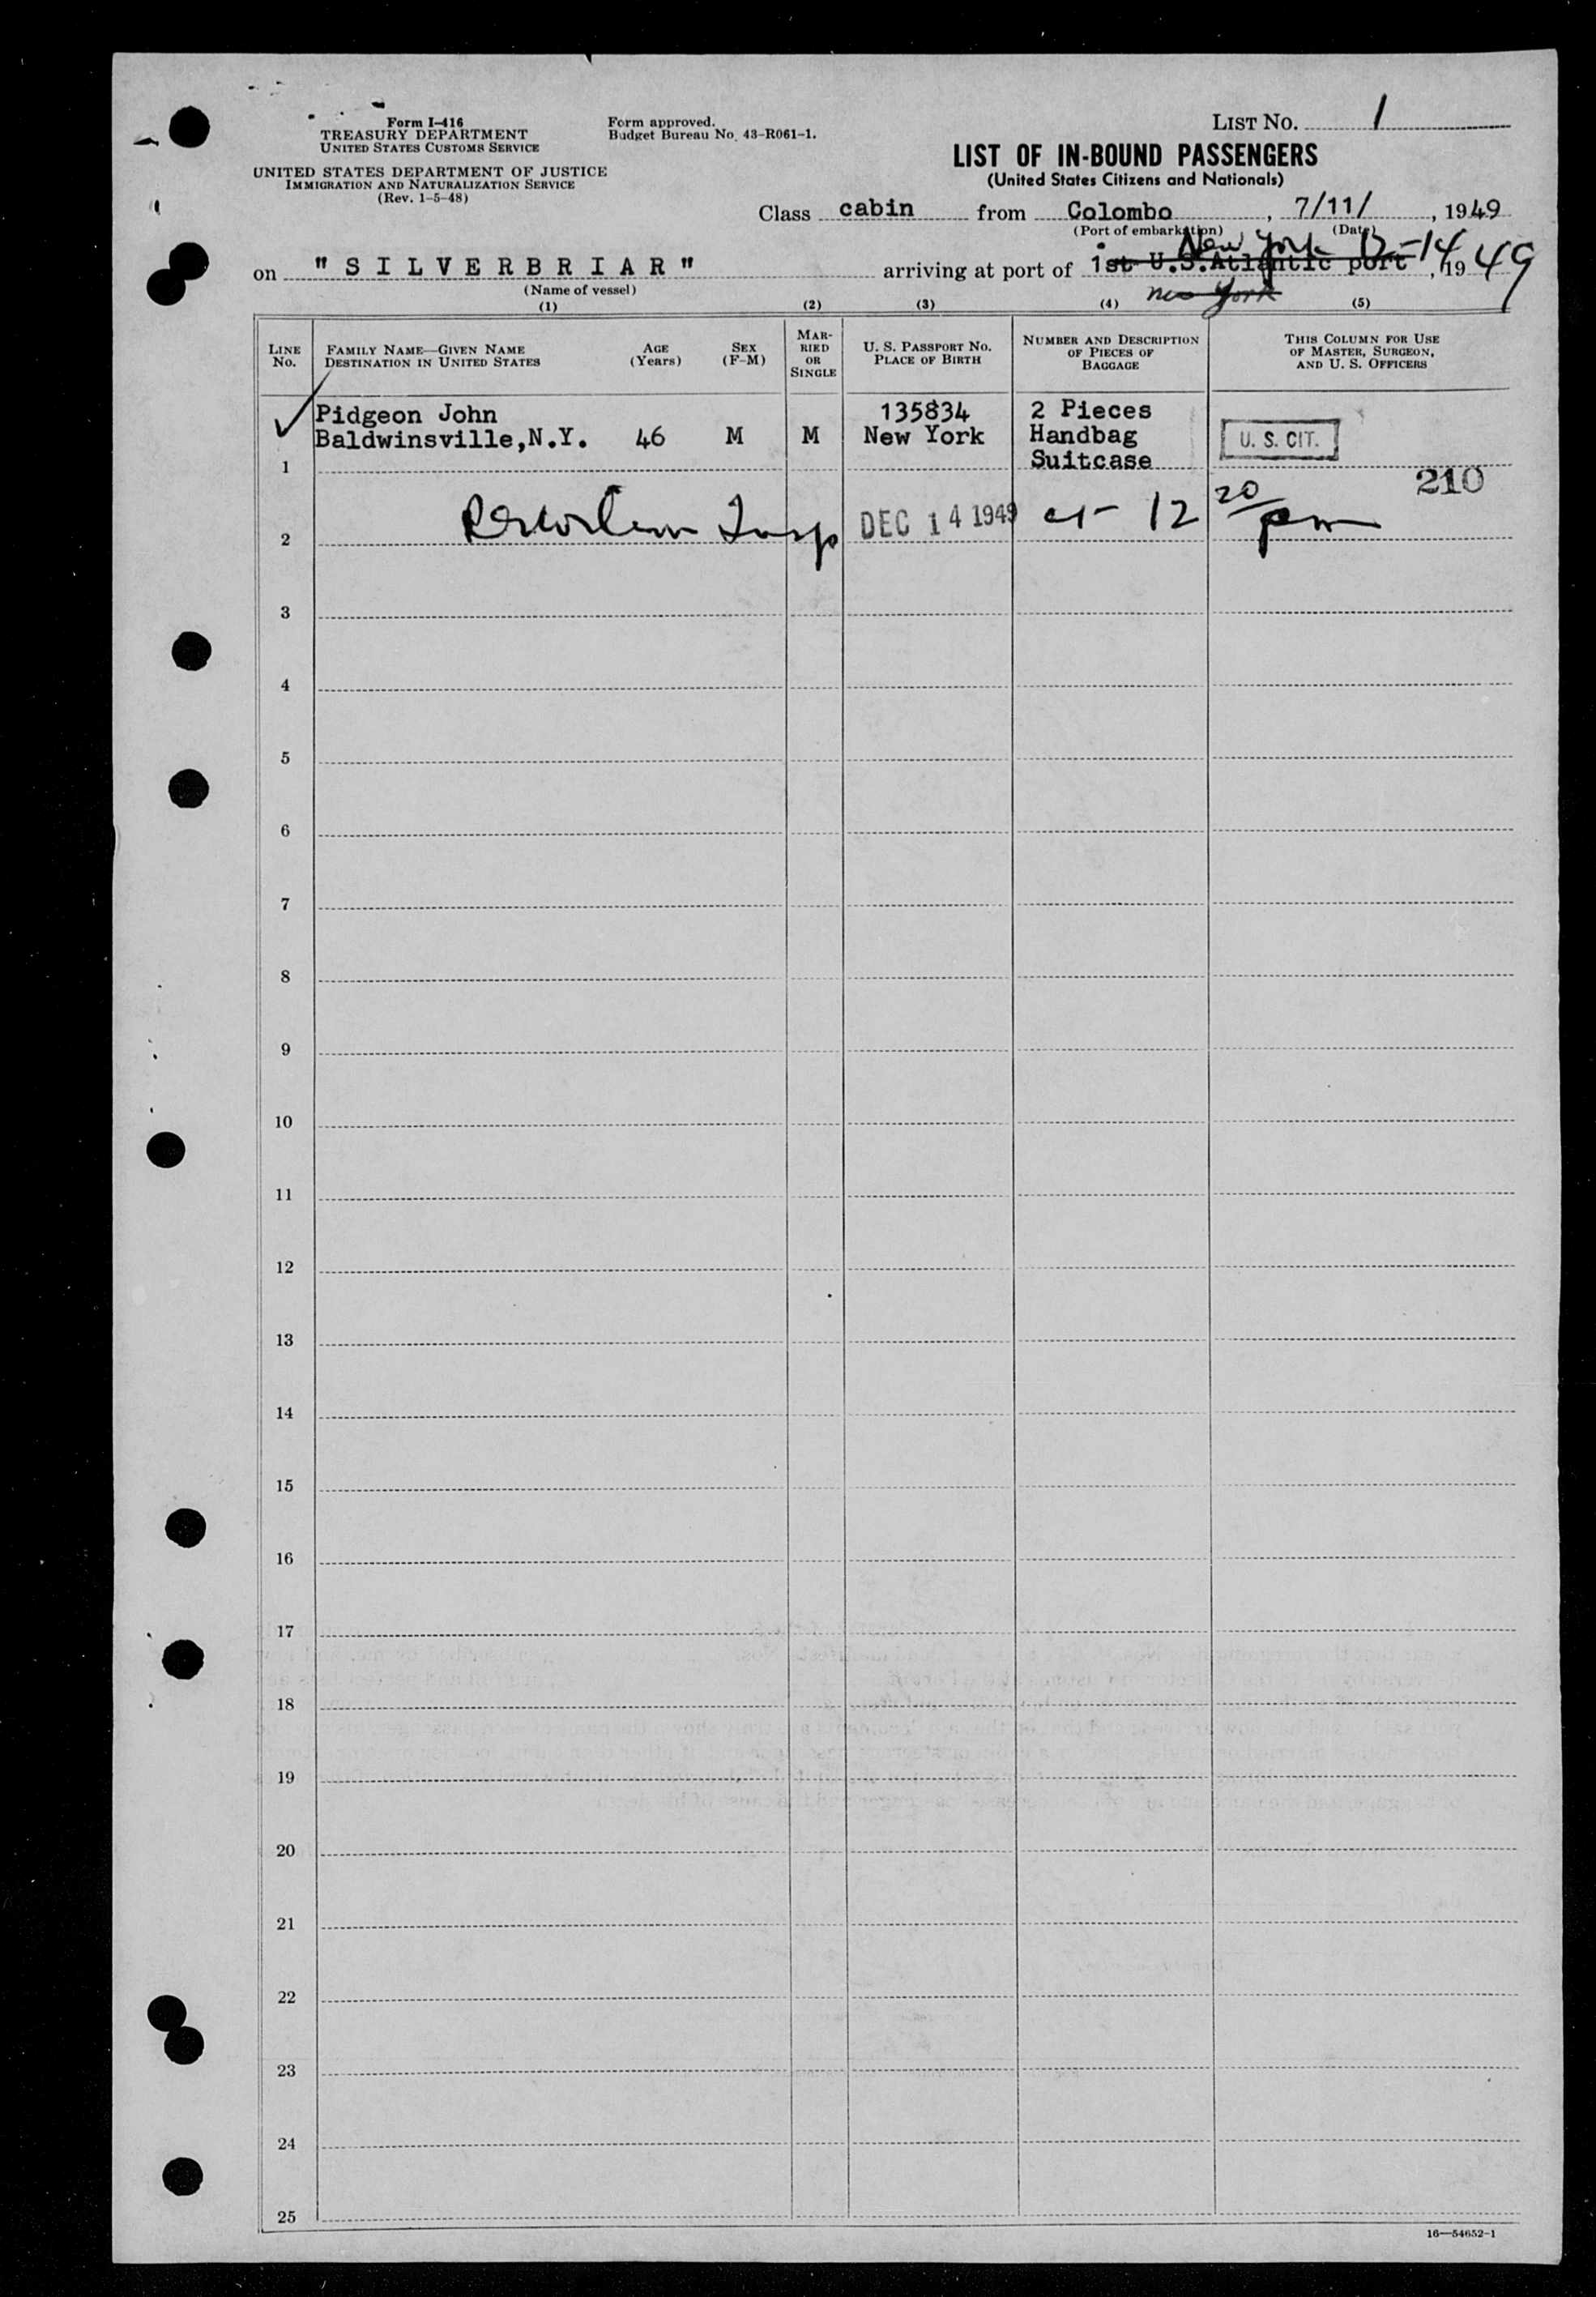 Form I-416
TREASURY DEPARTMENT
UNITED STATES CUSTOMS SERVICE
UNITED STATES DEPARTMENT OF JUSTICE
IMMIGRATION AND NATURALIZATION SERVICE
(Rev. 1-5-48)
Form approved.
Budget Bureau No. 43-R061-1.
LIST NO. 1
LIST OF IN-BOUND PASSENGERS
(United States Citizens and Nationals)
Class cabin from Colombo, 7/11/, 1949
(Port of embarkation) (Date)
New York 12-14
on "SILVERBRIAR" arriving at port of 1st U.S.Atlantic port, 1949
(Name of vessel) New York
(1) (2) (3) (4) (5)
LINE NO. FAMILY NAME—GIVEN NAME DESTINATION IN UNITED STATES AGE (Years) SEX (F-M) MARRIED OR SINGLE U. S. PASSPORT NO. PLACE OF BIRTH NUMBER AND DESCRIPTION OF PIECES OF BAGGAGE THIS COLUMN FOR USE OF MASTER, SURGEON, AND U. S. OFFICERS
Pidgeon John 135834 2 Pieces
Baldwinsville,N.Y. 46 M M New York Handbag U. S. CIT.
1 Suitcase
210
2 Insp DEC 14 1949 at 12 20/pm
3
4
5
6
7
8
9
10
11
12
13
14
15
16
17
18
19
20
21
22
23
24
25
16—54652-1